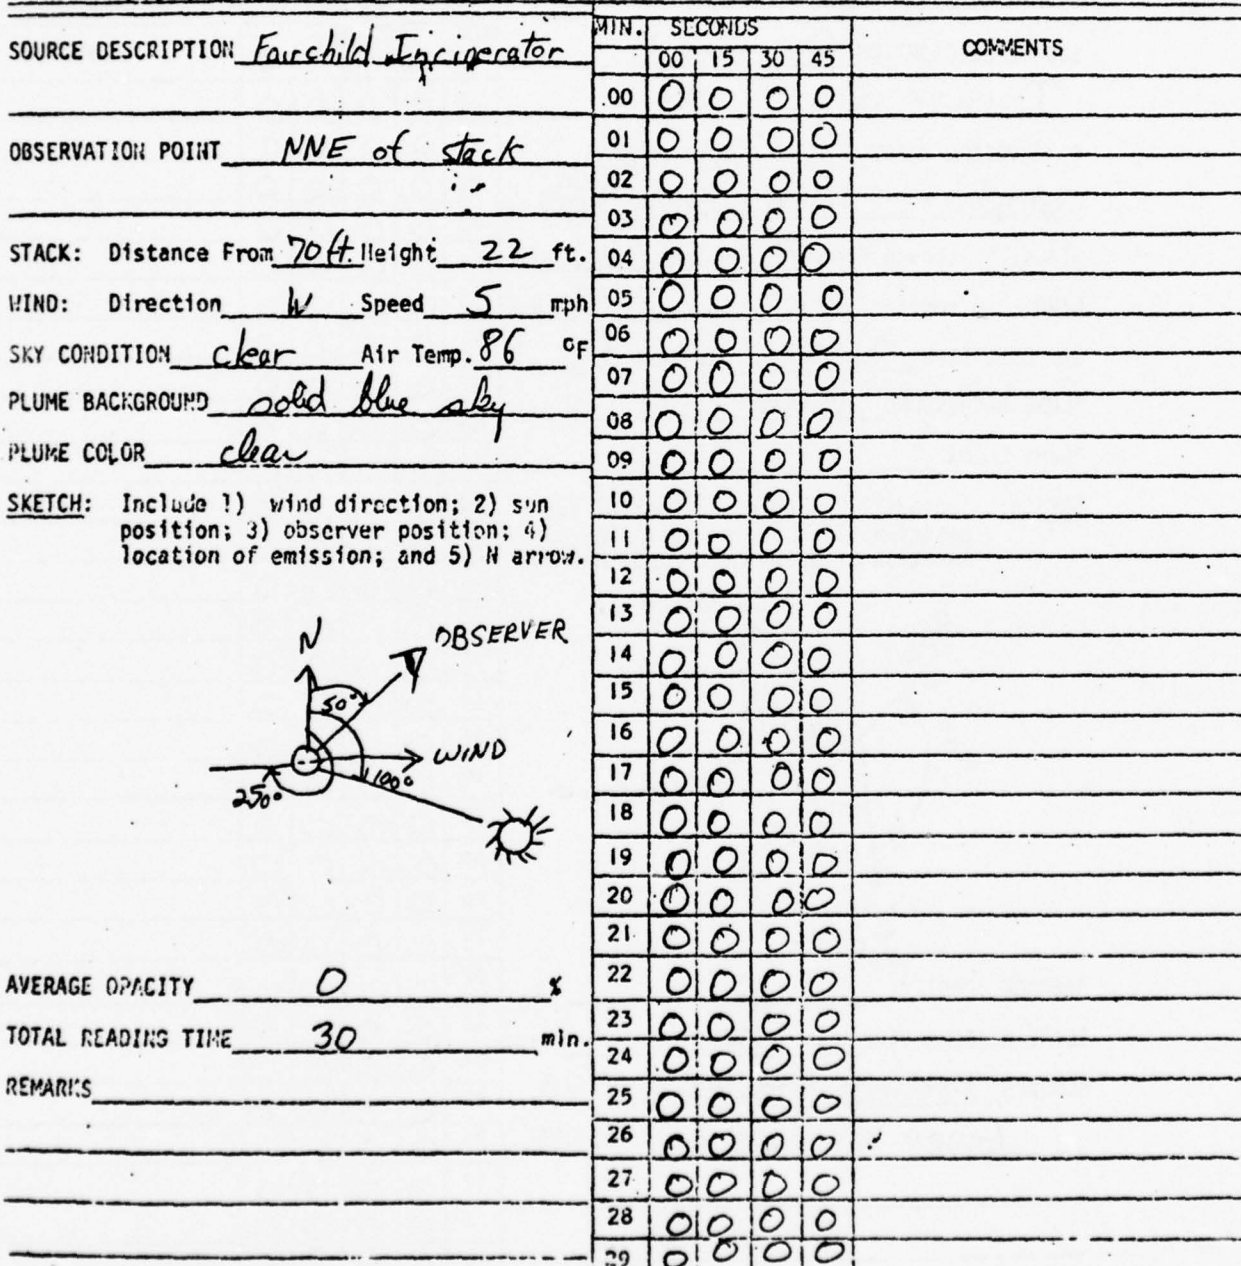 SOURCE DESCRIPTION Fairchild Incinerator
OBSERVATION POINT NNE of stack
STACK: Distance From 70 ft. Height 22 ft.
WIND: Direction W Speed 5 mph
SKY CONDITION clear Air Temp. 86 °F
PLUME BACKGROUND solid blue sky
PLUME COLOR clear
SKETCH: Include 1) wind direction; 2) sun
position; 3) observer position; 4)
location of emission; and 5) N arrow.
N
OBSERVER
50°
WIND
100°
250°
AVERAGE OPACITY 0 %
TOTAL READING TIME 30 min.
REMARKS
MIN. SECONDS COMMENTS
00 15 30 45
00 0 0 0 0
01 0 0 0 0
02 0 0 0 0
03 0 0 0 0
04 0 0 0 0
05 0 0 0 0
06 0 0 0 0
07 0 0 0 0
08 0 0 0 0
09 0 0 0 0
10 0 0 0 0
11 0 0 0 0
12 0 0 0 0
13 0 0 0 0
14 0 0 0 0
15 0 0 0 0
16 0 0 0 0
17 0 0 0 0
18 0 0 0 0
19 0 0 0 0
20 0 0 0 0
21 0 0 0 0
22 0 0 0 0
23 0 0 0 0
24 0 0 0 0
25 0 0 0 0
26 0 0 0 0
27 0 0 0 0
28 0 0 0 0
29 0 0 0 0